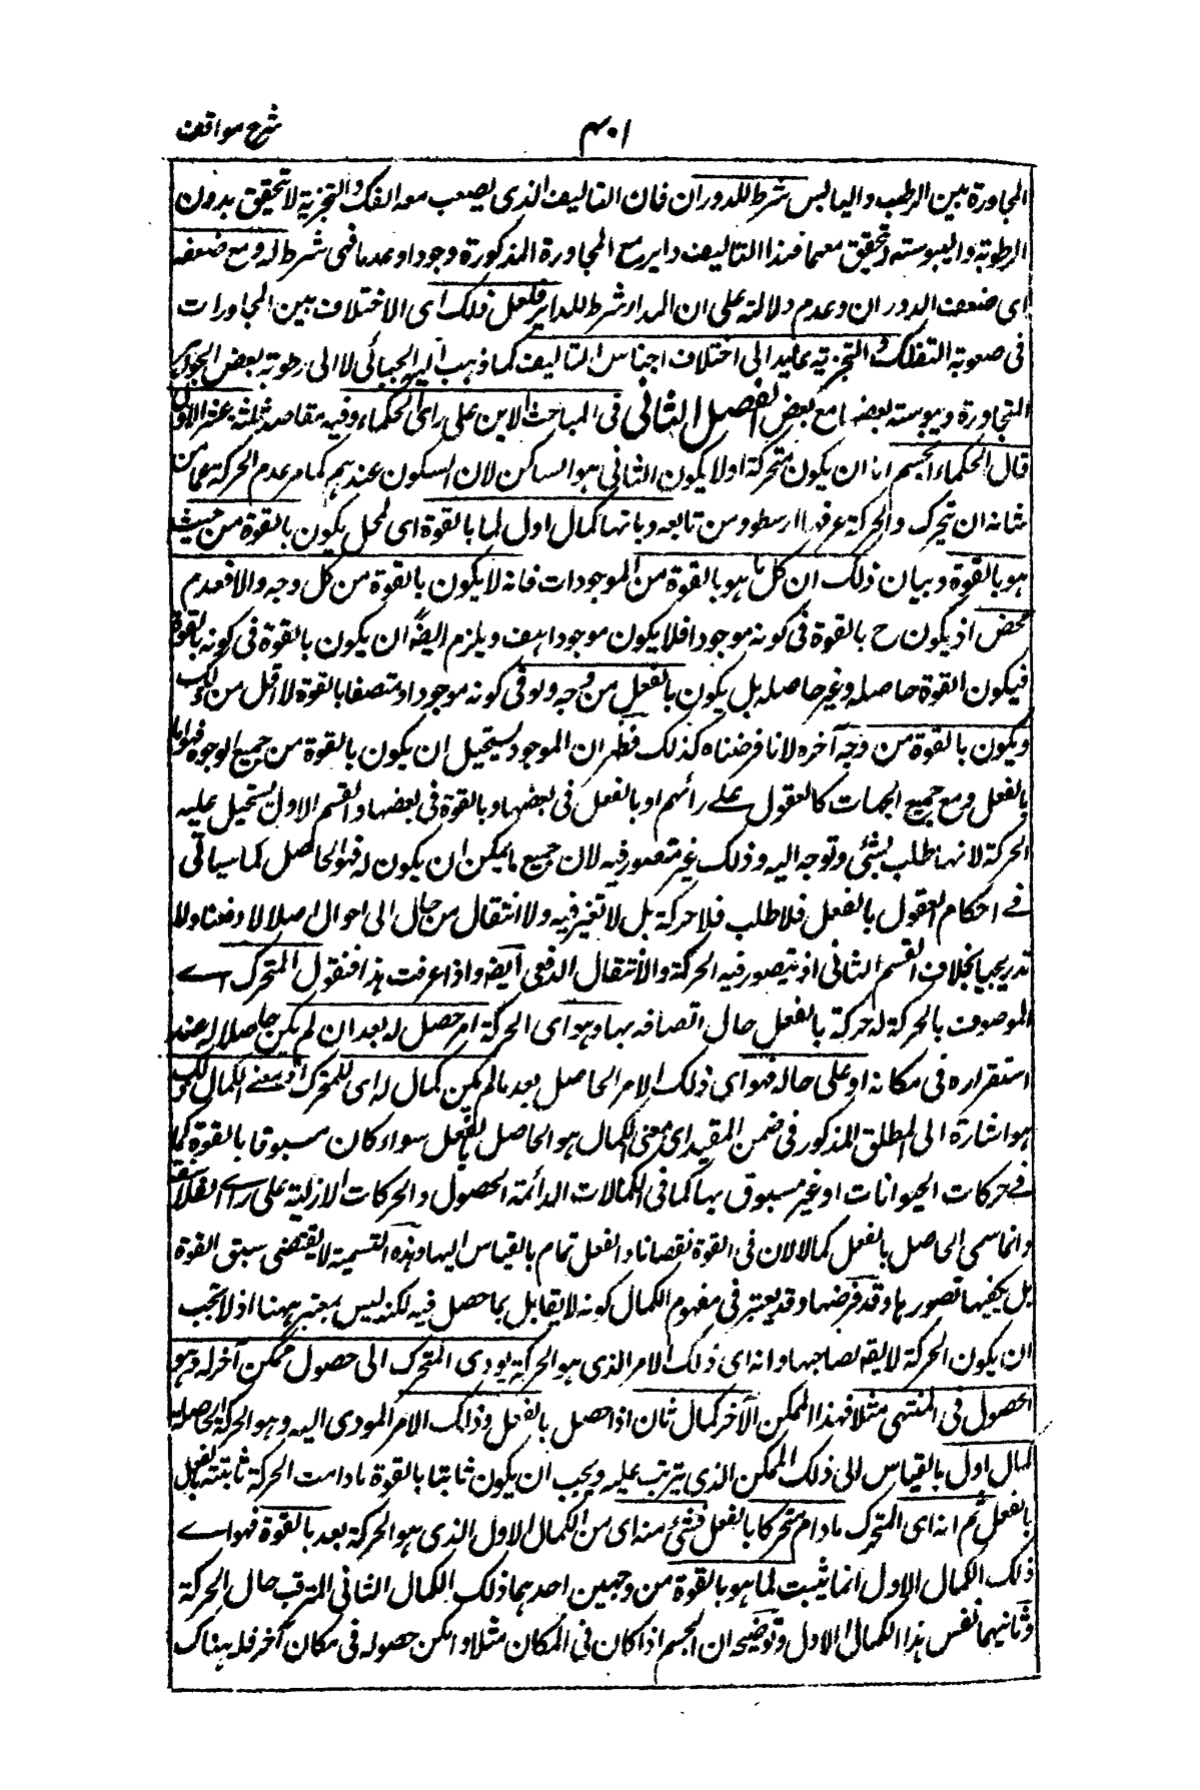 شرح مواقف
۴۰۱
المجاورة بين الرطب واليابس شرط للدوران فان التاليف الذى يصعب معه الفك والتجزية لا تحقيق بدون
الرطوبة واليبوسته وتحقيق معهما فهذا التاليف داير مع المجاورة المذكورة وجودا وعدما فهى شرط له ومع ضعفه
اى ضعف الدوران وعدم دلالته على ان المدار شرط للداير فلعل ذلك اى الاختلاف بين المجاورات
فى صعوبة التفكك والتجزية عايد الى اختلاف اجناس التاليف كما ذهب اليه الجبائى لا الى رطوبة بعض الجواهر
المتجاورة ويبوسته بعضها مع بعض الفصل الثانى فى المباحث الاين على راى الحكماء وفيه مقاصد ثلثة عشر الاول
قال الحكماء الجسم اما ان يكون متحركة اولا يكون الثانى هو الساكن لان السكون عندهم كما مر عدم الحركة عما من
شانه ان تحرك والحركة عرفها ارسطو ومن تابعه وبانها كمال اول لما بالقوة اى لمحل يكون بالقوة من حيث
هو بالقوة وبيان ذلك ان كل ما هو بالقوة من الموجودات فانه لا يكون بالقوة من كل وجه والا فعدم
محض اذ يكون ح بالقوة فى كونه موجودا فلا يكون موجودا هف ويلزم ايضا ان يكون بالقوة فى كونه بالقوة
فيكون القوة حاصله وغير حاصله بل يكون بالفعل من وجه ولو فى كونه موجودا ومتصفا بالقوة لا اقل من ذلك
ويكون بالقوة من وجه آخره لانا فرضناه كذلك فظهر ان الموجود يستحيل ان يكون بالقوة من جميع الوجوه فهو اما
بالفعل ومع جميع الجهات كالعقول على رائهم او بالفعل فى بعضها وبالقوة فى بعضها والقسم الاول يستحيل عليه
الحركة لانها طلب لشئ وتوجه اليه وذلك غير متصور فيه لان جميع ما يمكن ان يكون له فهو الحاصل كما سياتى
فى احكام العقول بالفعل فلا طلب فلا حركة بل لا تغير فيه ولا انتقال من حال الى احوال اصلا لا دفعنا ولا
تدريجيا بخلاف القسم الثانى اذ يتصور فيه الحركة والانتقال الدفعى ايضه واذا عرفت هذا فنقول المتحرك اے
الموصوف بالحركة له حركة بالفعل حال اتصافه بها وهو اى الحركة امر حصل له بعد ان لم يكن حاصلا له عند
استقراره فى مكانه او على حاله فهو اى ذلك الامر الحاصل بعد ما لم يكن كمال له اى للمتحرك اذ معنے الكمال ذلك
هو اشارة الى المطلق المذكور فى ضمن المقيد اى معنى الكمال هو الحاصل بالفعل سواء كان مسبوقا بالقوة كما
فى حركات الحيوانات او غير مسبوق بها كما فى الكمالات الدائمة الحصول والحركات الازلية على راے الفلاسفة
وانما سمى الحاصل بالفعل كمالا لان فى القوة نقصانا والفعل تمام بالقياس اليها وهذه التسمية لا يقتضى سبق القوة
بل يكفيها تصورها وقد فرضها وقد يعتبر فى مفهوم الكمال كونه لا يقابل بما حصل فيه لكنه ليس بمعتبر ههنا اذ لا تجب
ان يكون الحركة لا يقه لصاحبها وانه اى ذلك الامر الذى هو الحركة يودى المتحرك الى حصول ممكن آخر له وهو
الحصول فى المنتهى مثلا فهذا الممكن الآخر كمال ثان اذا حصل بالفعل وذلك الامر المودى اليه وهو الحركة الحاصلة
كمال اول بالقياس الى ذلك الممكن الذى يترتب عليه ويجب ان يكون ثابتا بالقوة مادامت الحركة ثابتته بالفعل
بالفعل ثم انه اى المتحرك مادام متحركا بالفعل فشئ منه اى من الكمال الاول الذى هو الحركة بعد بالقوة فهو اے
ذلك الكمال الاول انما يثبت لما هو بالقوة من وجهين احدهما ذلك الكمال الثانى المترقب حال الحركة
وثانيهما نفس هذا الكمال الاول وتوضيحه ان الجسم اذا كان فى المكان مثلا وامكن حصوله فى مكان آخر فله هناك